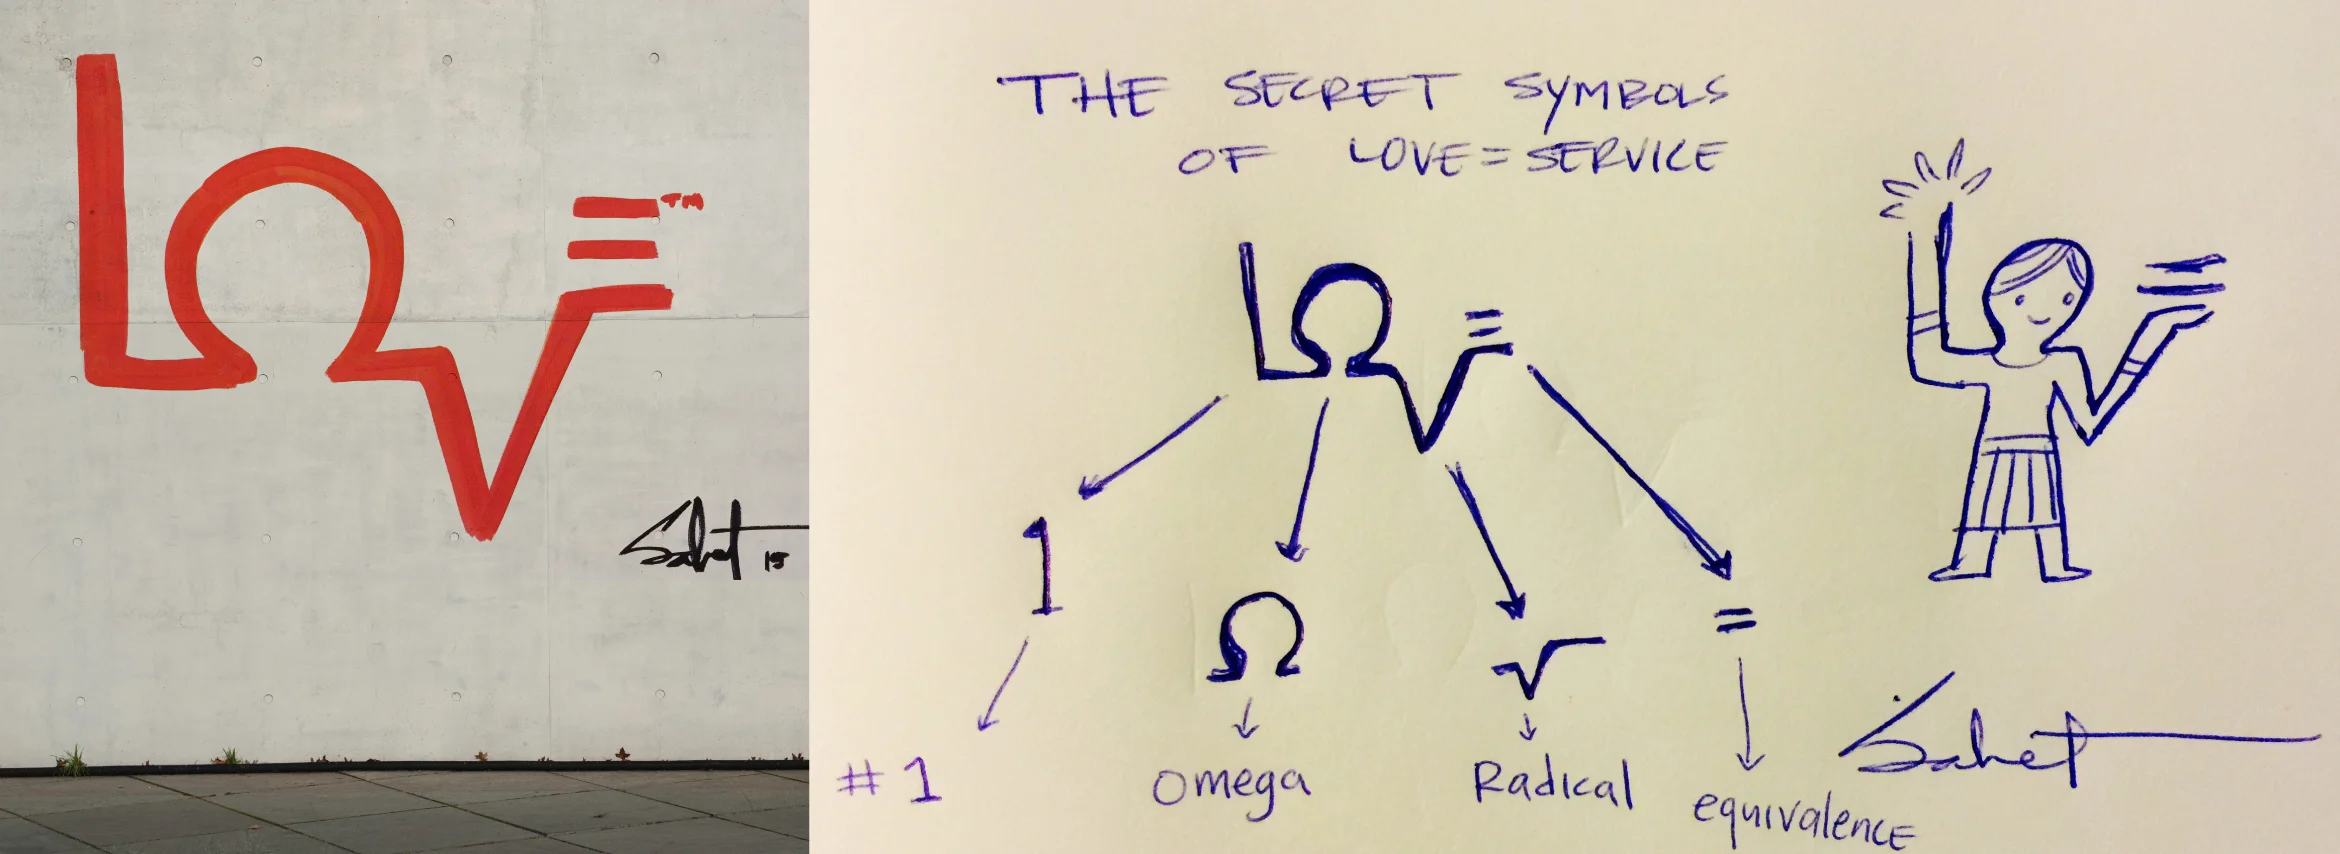 LΩVE™
Sahet 15
THE SECRET SYMBOLS
OF LOVE = SERVICE
LΩVE
1
Ω
√
=
#1
Omega
Radical
equivalence
Sahet